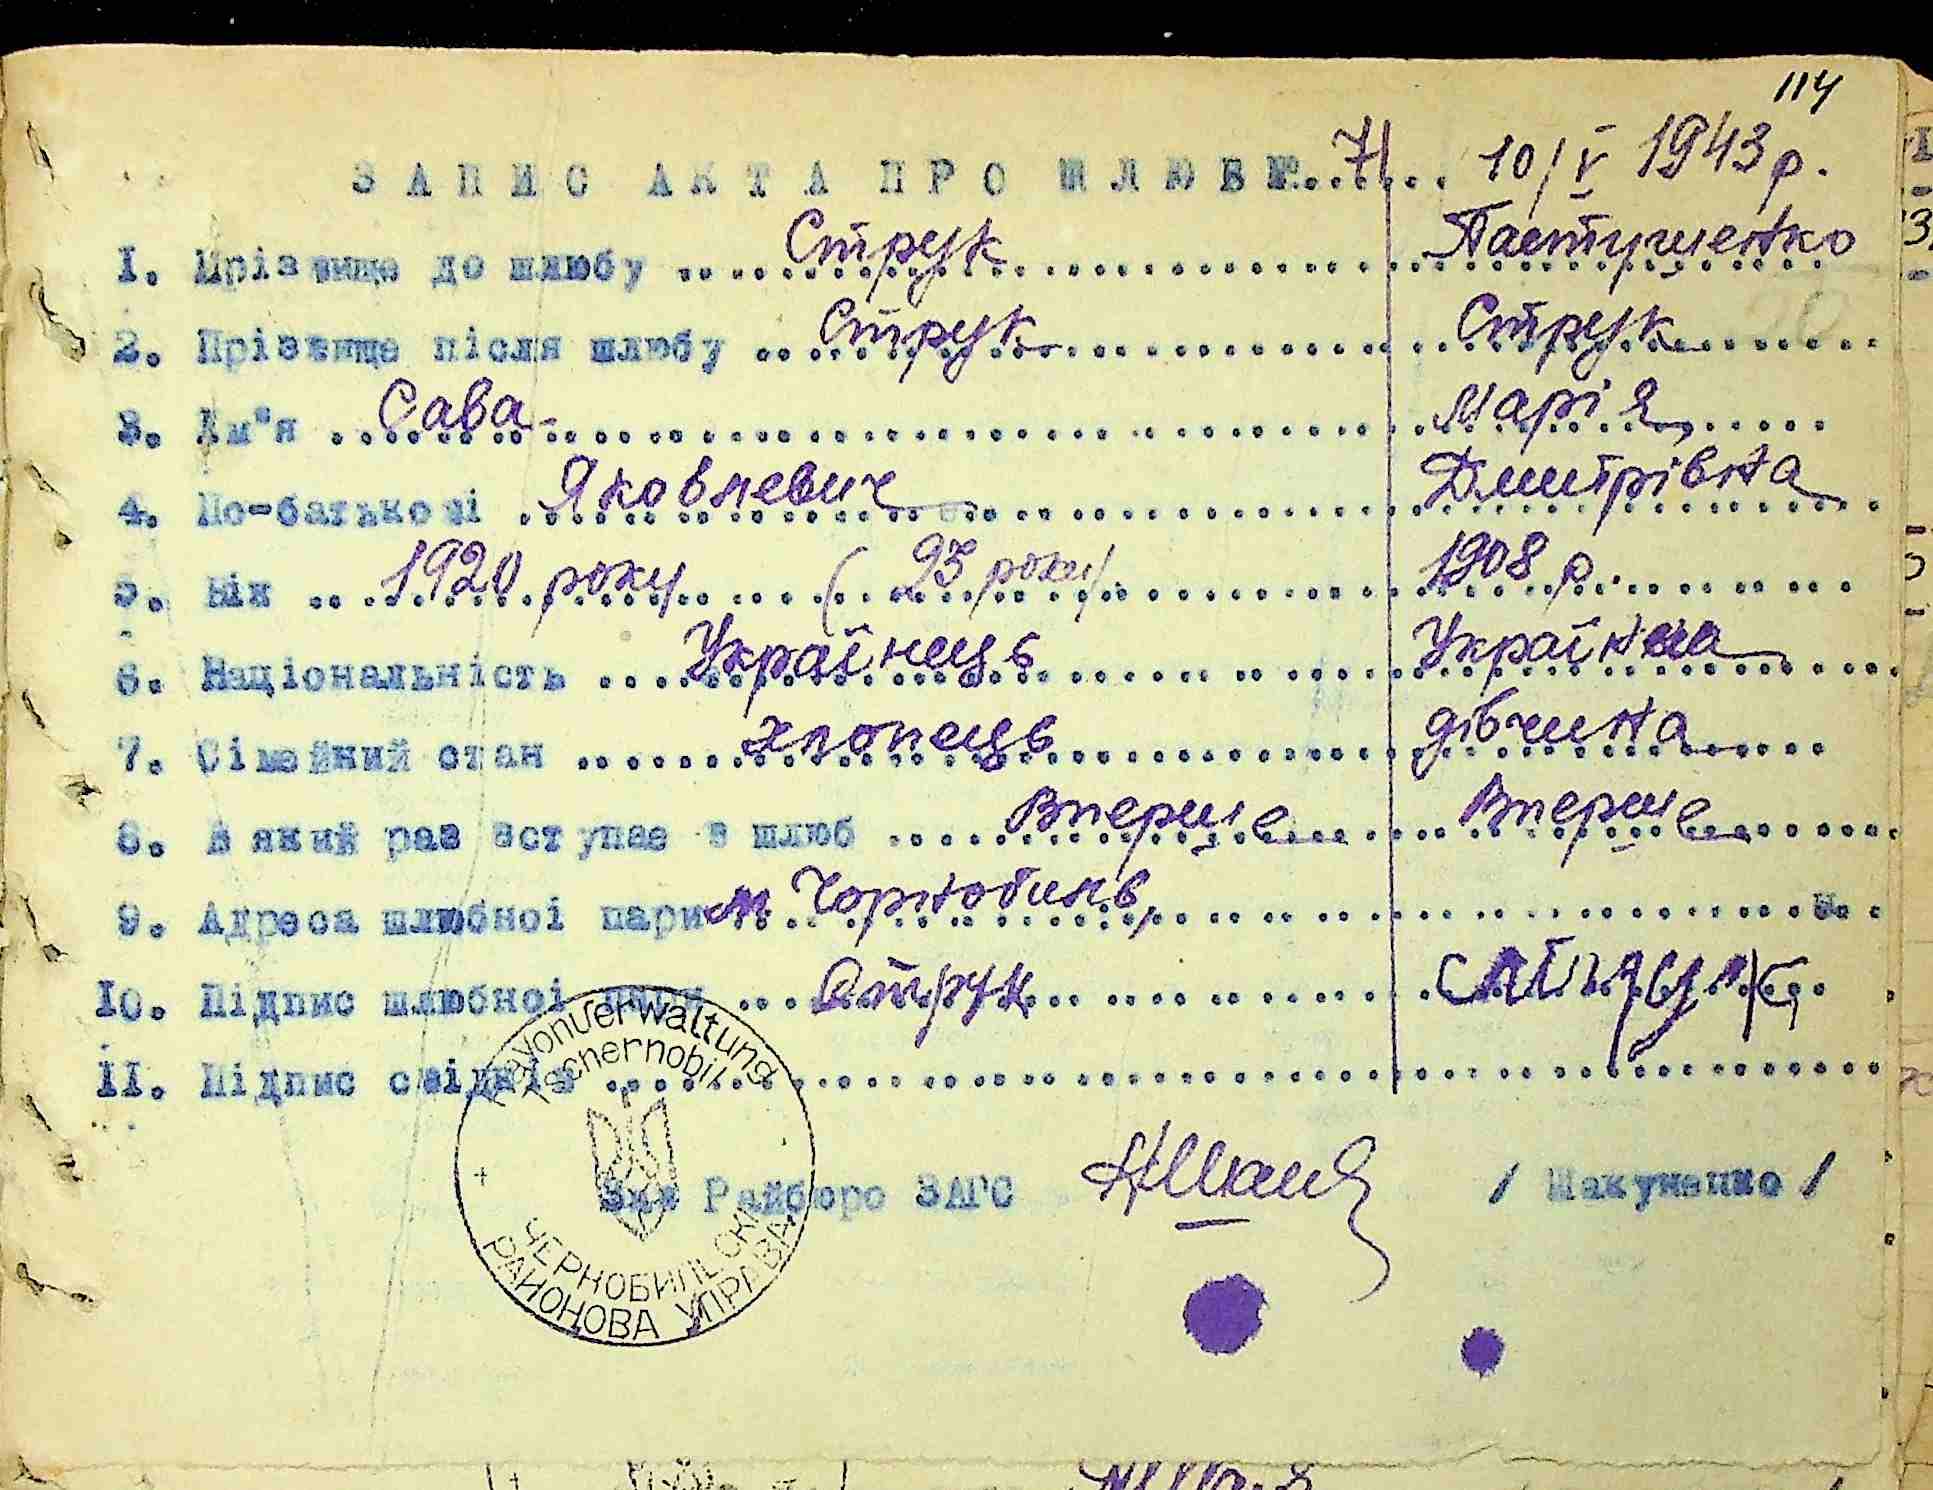 114
ЗАПИС АКТА ПРО ШЛЮБ №..71.. 10/V 1943 р.
1. Прізвище до шлюбу .. Струк .. Пастушенко
2. Прізвище після шлюбу .. Струк .. Струк
3. Ім"я .. Сава .. Марія
4. По-батькові .. Яковлевич .. Дмитрівна
5. Вік .. 1920 року .. (23 роки) .. 1908 р.
6. Національність .. Українець .. Українка
7. Сімейний стан .. хлопець .. дівчина
8. В який раз вступає в шлюб .. Вперше .. Вперше
9. Адреса шлюбної пари м. Чорнобиль,
10. Підпис шлюбної пари .. Струк ..
11. Підпис свідків ..
Rayonverwaltung
Tschernobil
Зав Райбюро ЗАГС / Шакуненко /
ЧЕРНОБИЛЬСКА
РАЙОНОВА УПРАВА